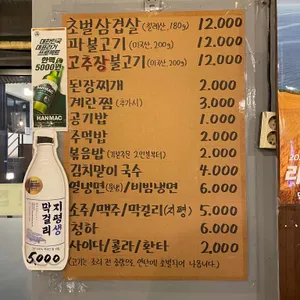 초벌삼겹살 (칠레산, 180g) 12.000
파불고기 (미국산, 200g) 12.000
고추장불고기 (미국산, 200g) 12.000
된장찌개 2.000
계란찜 (추가시) 3.000
공기밥 1.000
주먹밥 2.000
볶음밥 2.000
김치말이 국수 4.000
열냉면(물냉) / 비빔냉면 6.000
소주/맥주/막걸리(지평) 5.000
청하 6.000
사이다/콜라/환타 2.000
대한민국
대표라거
한맥
5000원
HANMAC
지평생
막걸리
5000